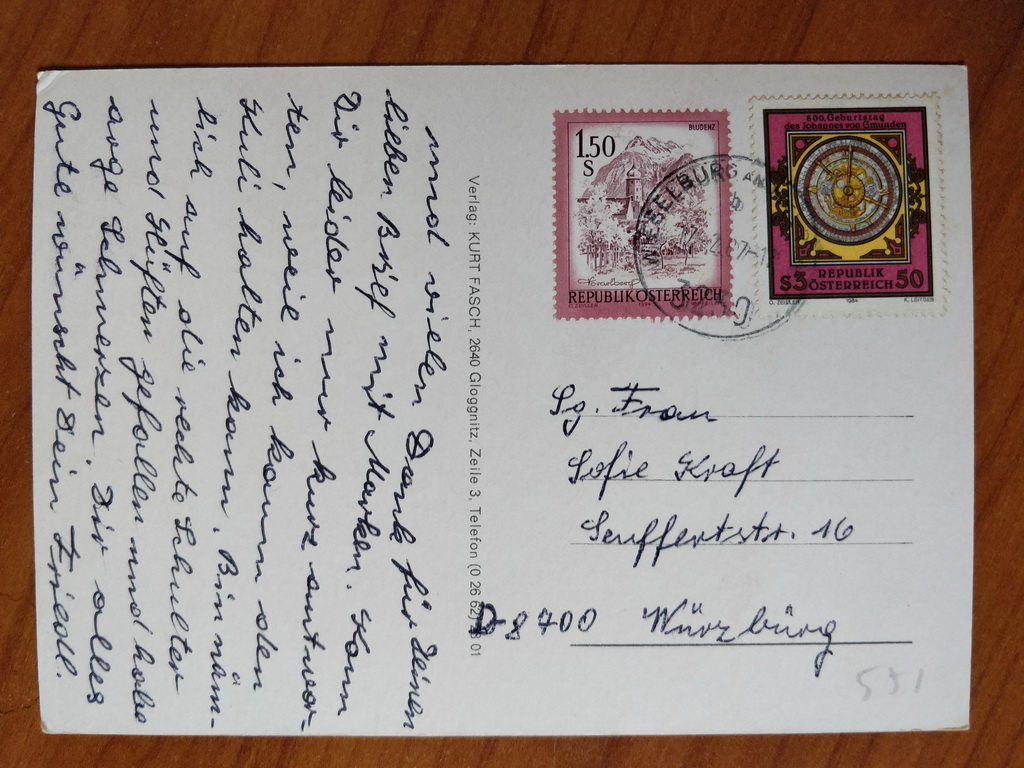 und vielen Dank für Deinen
lieben Brief mit Marken. Kann
Dir leider nur kurz antwor-
ten, weil ich kaum den
Kuli halten kann. Bin näm-
lich auf die rechte Schulter
und Hüften gefallen und habe
arge Schmerzen. Dir alles
Gute wünscht Dein Friedl.
Verlag: KURT FASCH, 2640 Gloggnitz, Zeile 3, Telefon (0 26 62) 01
BLUDENZ
1.50
S
Vorarlberg
REPUBLIK ÖSTERREICH
600. Geburtstag
des Johannes von Gmunden
REPUBLIK
S3 ÖSTERREICH 50
O. ZEILER 1984 K. LEITGEB
WIESELBURG AN
b
3250
Sg. Frau
Sofie Kraft
Seuffertstr. 16
D 8700 Würzbürg
551